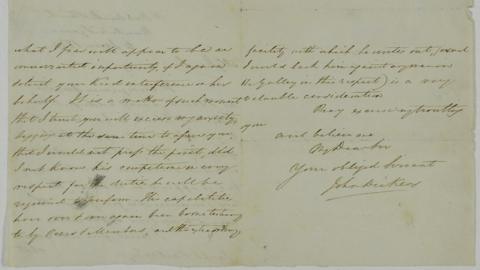 what I fear will appear to be an
unwarranted importunity, if I again
intreat your kind interference on his
behalf. It is a matter of such moment
that I trust you will excuse my anxiety,
begging at the same time to assure you
that I would not press the point, did
I not know his competence in every
respect for the duties he would be
required to perform. His capabilities
have over & again been borne testimony
to by Cases & Members, and the
facility with which he writes out,
I would back him against any man
in this respect) is a very
valuable consideration
Pray excuse my troubling
you
and believe me
My Dear Sir
Your obliged Servant
John Dickens